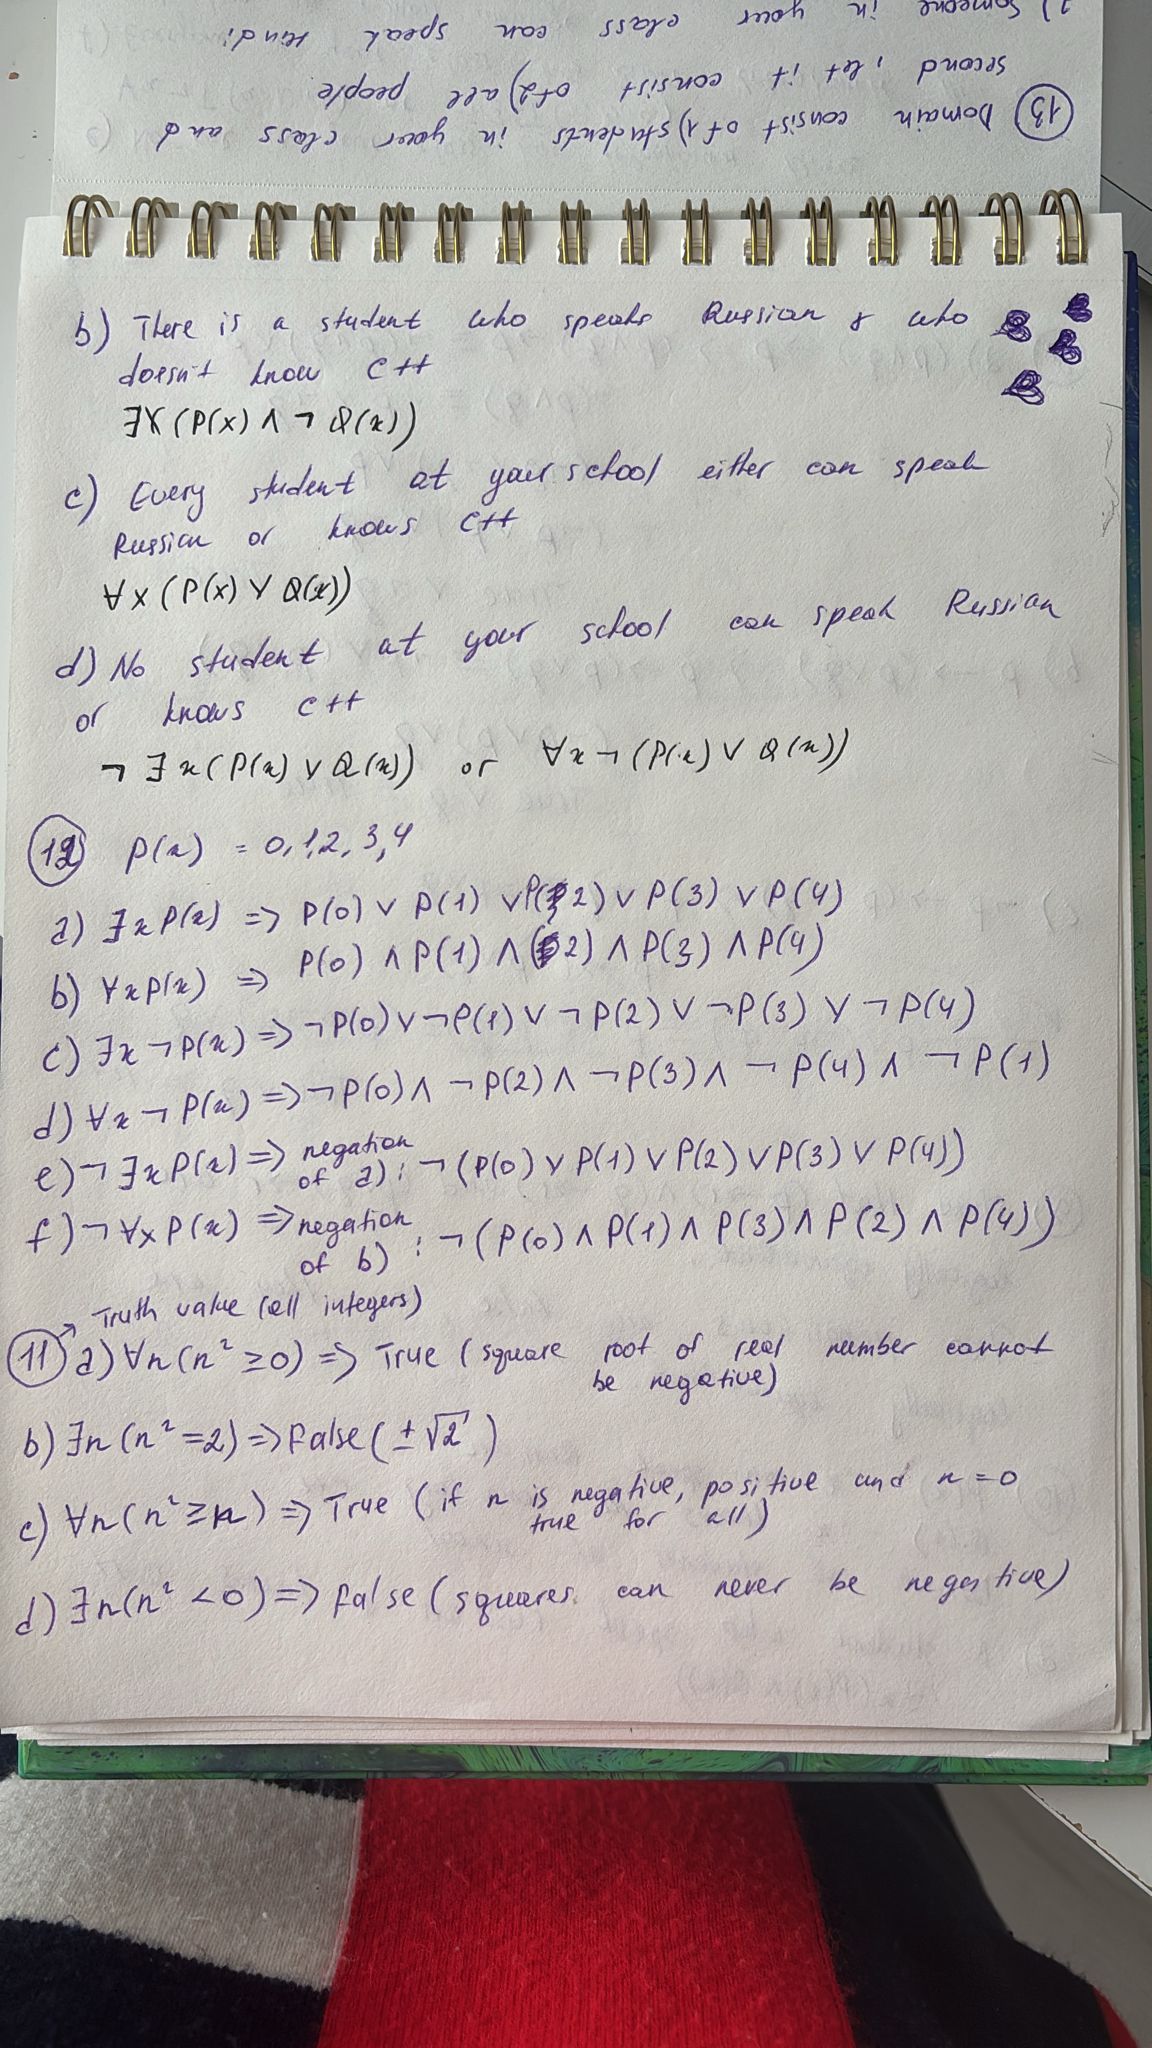 (13) Domain consist of 1) students in your class and
second, let it consist of 2) all people
1) Someone in your class can speak Hindi
b) There is a student who speaks Russian & who
doesn't know C++
∃x(P(x) ∧ ¬ Q(x))
c) Every student at your school either can speak
Russian or knows C++
∀x(P(x) ∨ Q(x))
d) No student at your school can speak Russian
or knows C++
¬∃x(P(x) ∨ Q(x)) or ∀x¬(P(x) ∨ Q(x))
(12) P(x) = 0,1,2,3,4
a) ∃xP(x) => P(0) ∨ P(1) ∨ P(2) ∨ P(3) ∨ P(4)
b) ∀xP(x) => P(0) ∧ P(1) ∧ (2) ∧ P(3) ∧ P(4)
c) ∃x¬P(x) => ¬P(0) ∨ ¬P(1) ∨ ¬P(2) ∨ ¬P(3) ∨ ¬P(4)
d) ∀x¬P(x) => ¬P(0) ∧ ¬P(2) ∧ ¬P(3) ∧ ¬P(4) ∧ ¬P(1)
e) ¬∃xP(x) => negation
of a) : ¬(P(0) ∨ P(1) ∨ P(2) ∨ P(3) ∨ P(4))
f) ¬∀xP(x) => negation
of b) : ¬(P(0) ∧ P(1) ∧ P(3) ∧ P(2) ∧ P(4))
Truth value (all integers)
(11) a) ∀n(n² ≥ 0) => True (square root of real number cannot
be negative)
b) ∃n(n² = 2) => False (±√2)
c) ∀n(n² ≥ n) => True (if n is negative, positive and n = 0
true for all)
d) ∃n(n² < 0) => False (squares can never be negative)